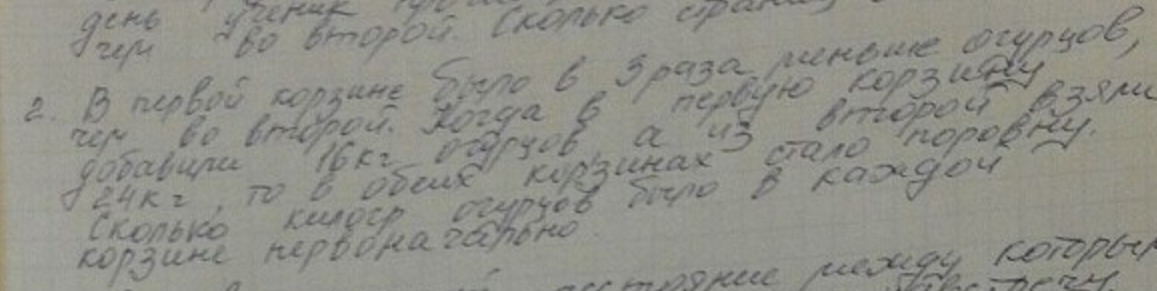 день ученик
чем во второй. Сколько страниц
2. В первой корзине было в 3 раза меньше огурцов,
чем во второй. Когда в первую корзину
добавили 16кг огурцов, а из второй взяли
24кг, то в обеих корзинах стало поровну.
Сколько килогр огурцов было в каждой
корзине первоначально.
между которым